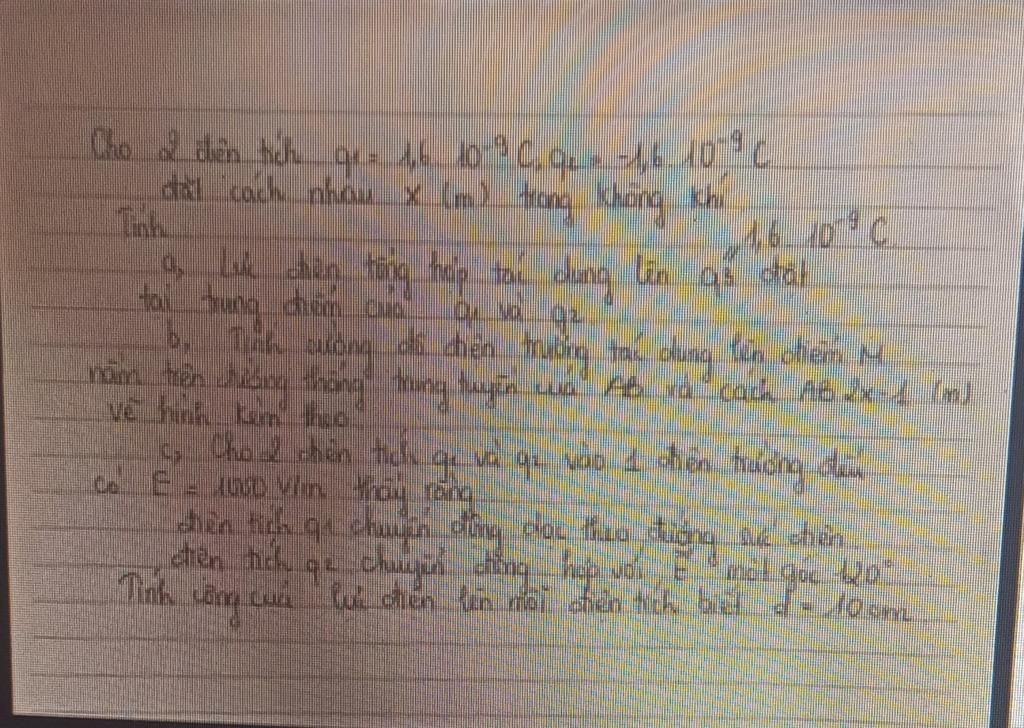 Cho 2 điện tích q1 = 1,6 10⁻⁹ C, q2 = -1,6 10⁻⁹ C
đặt cách nhau x (m) trong không khí
Tính 1,6 10⁻⁹ C
a, Lực điện tổng hợp tác dụng lên q3 đặt
tại trung điểm của q1 và q2
b, Tính cường độ điện trường tác dụng lên điểm M
nằm trên đường thẳng trung tuyến của AB và cách AB 2x-1 (m)
vẽ hình kèm theo
c, Cho 2 điện tích q1 và q2 vào 1 điện trường đều
có E = 1000 V/m thấy rằng
điện tích q1 chuyển động dọc theo đường sức điện
điện tích q2 chuyển động hợp với E một góc 120°
Tính công của lực điện lên mỗi điện tích biết d = 10 cm